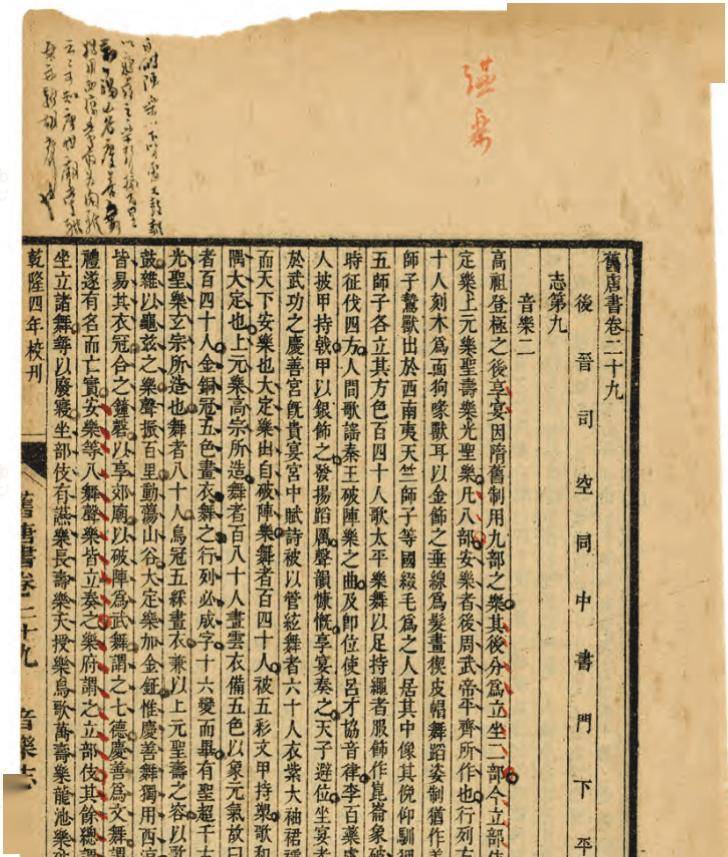 讌樂
舊唐書卷二十九
後晉司空同中書門下平
志第九
音樂二
高祖登極之後享宴因隋舊制用九部之樂其後分爲立坐二部今立部伎
定樂上元樂聖壽樂光聖樂凡八部安樂者後周武帝平齊所作也行列方
十人刻木爲面狗喙獸耳以金飾之垂線爲髮畫猰皮帽舞蹈姿制猶作羌
師子鷙獸出於西南夷天竺師子等國綴毛爲之人居其中像其俛仰馴狎
五師子各立其方色百四十人歌太平樂舞以足持繩者服飾作崑崙象破
時征伐四方人間歌謠秦王破陣樂之曲及即位使呂才協音律李百藥虞
人披甲持戟甲以銀飾之發揚蹈厲聲韻慷慨享宴奏之天子避位坐宴者
於武功之慶善宮旣貴宴宮中賦詩被以管絃舞者六十人衣紫大袖裙襦
而天下安樂也大定樂出自破陣樂舞者百四十人被五彩文甲持槊歌和
隅大定也上元樂高宗所造舞者百八十人畫雲衣備五色以象元氣故曰
者百四十人金銅冠五色畫衣舞之行列必成字十六變而畢有聖超千古
光聖樂玄宗所造也舞者八十人鳥冠五綵畫衣兼以上元聖壽之容以歌
鼓雜以龜茲之樂聲振百里動蕩山谷大定樂加金鉦惟慶善舞獨用西涼
皆易其衣冠合之鐘磬以享郊廟以破陣爲武舞謂之七德慶善爲文舞謂
禮遂有名而亡實安樂等八舞聲樂皆立奏之樂府謂之立部伎其餘總謂
坐立諸舞等以廢寢坐部伎有讌樂長壽樂天授樂鳥歌萬壽樂龍池樂破
乾隆四年校刊
舊唐書卷二十九
音樂志